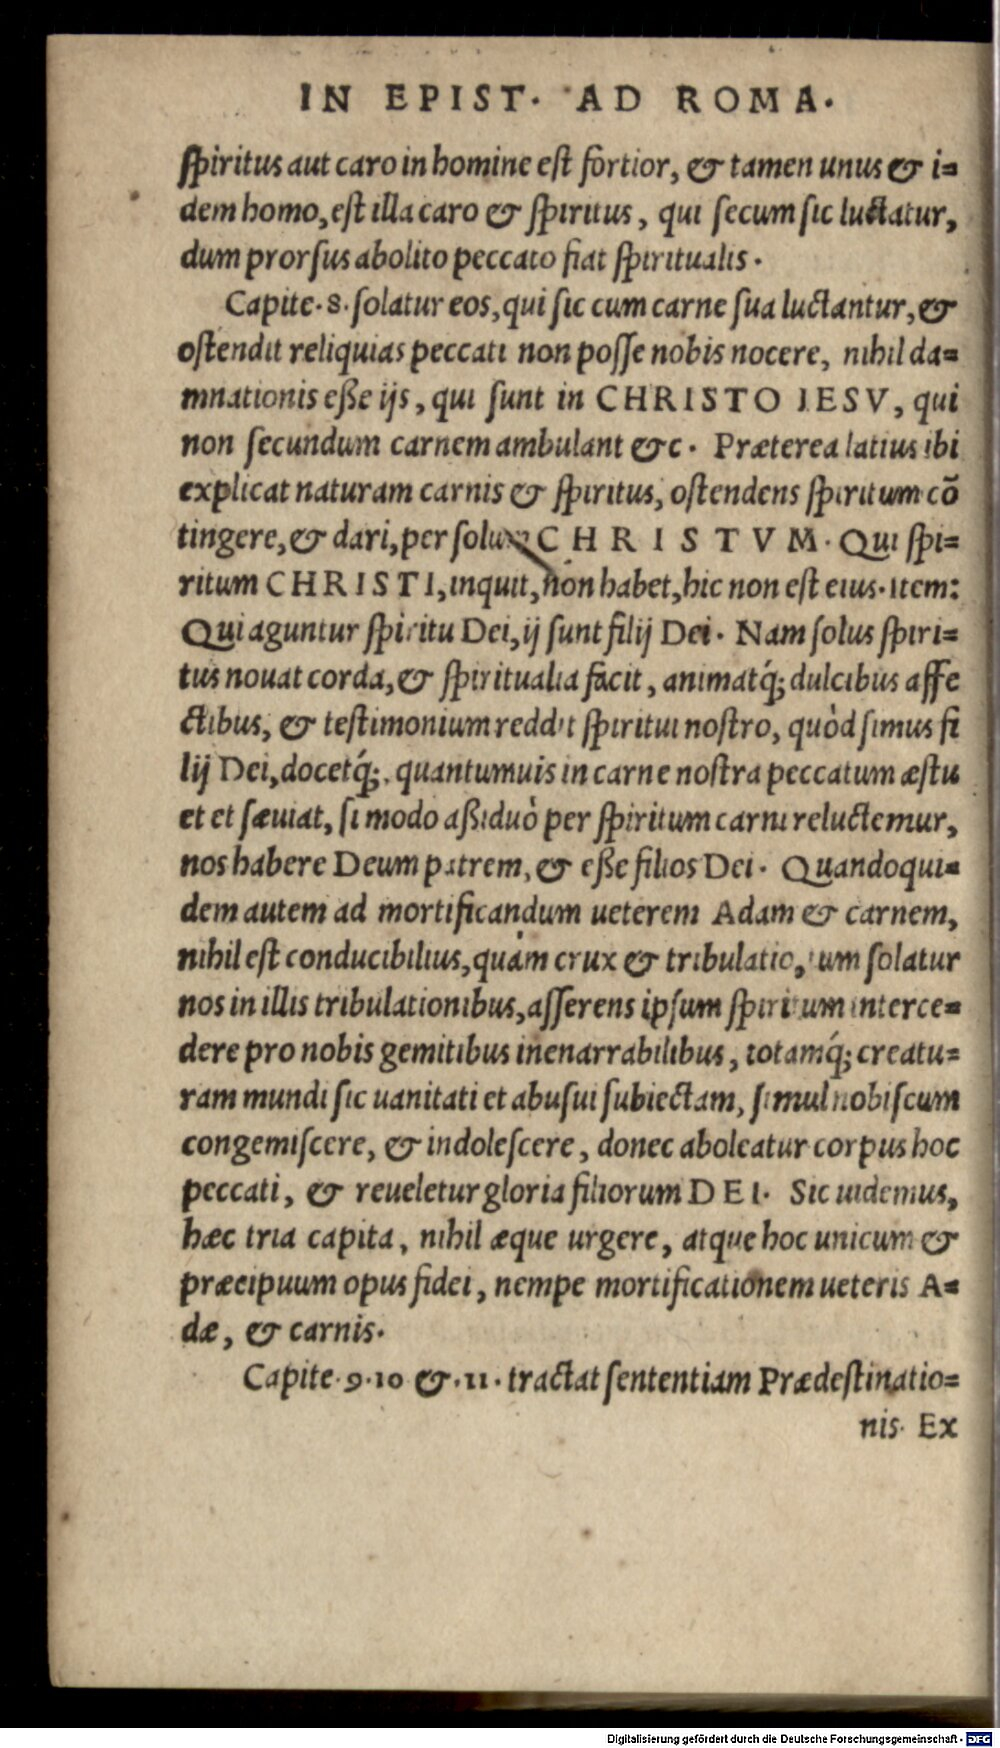 IN EPIST. AD ROMA.
ſpiritus aut caro in homine eſt fortior, & tamen unus & i=
dem homo, eſt illa caro & ſpiritus, qui ſecum ſic luctatur,
dum prorſus abolito peccato fiat ſpiritualis.
Capite.8. ſolatur eos, qui ſic cum carne ſua luctantur, &
oſtendit reliquias peccati non poſſe nobis nocere, nihil da=
mnationis eße ijs, qui ſunt in CHRISTO IESV, qui
non ſecundum carnem ambulant &c. Præterea latius ibi
explicat naturam carnis & ſpiritus, oſtendens ſpiritum cō
tingere, & dari, per ſolum CHRISTVM. Qui ſpi=
ritum CHRISTI, inquit, non habet, hic non est eius. Item:
Qui aguntur ſpiritu Dei, ij ſunt filij Dei. Nam ſolus ſpiri=
tus nouat corda, & ſpiritualia facit, animatq́; dulcibus affe
ctibus, & teſtimonium reddit ſpiritui noſtro, quòd ſimus fi
lij Dei, docetq́;, quantumuis in carne noſtra peccatum æſtu
et et ſæuiat, ſi modo aßiduò per ſpiritum carni reluctemur,
nos habere Deum patrem, & eße filios Dei. Quandoqui=
dem autem ad mortificandum ueterem Adam & carnem,
nihil eſt conducibilius, quàm crux & tribulatio, um ſolatur
nos in illis tribulationibus, aſſerens ipſum ſpiritum interce=
dere pro nobis gemitibus inenarrabilibus, totamq́; creatu=
ram mundi ſic uanitati et abuſui ſubiectam, ſimul nobiſcum
congemiſcere, & indoleſcere, donec aboleatur corpus hoc
peccati, & reueletur gloria filiorum DEI. Sic uidemus,
hæc tria capita, nihil æque urgere, atque hoc unicum &
præcipuum opus fidei, nempe mortificationem ueteris A=
dæ, & carnis.
Capite.9.10 &.11. tractat ſententiam Prædeſtinatio=
nis. Ex
Digitalisierung gefördert durch die Deutsche Forschungsgemeinschaft - DFG